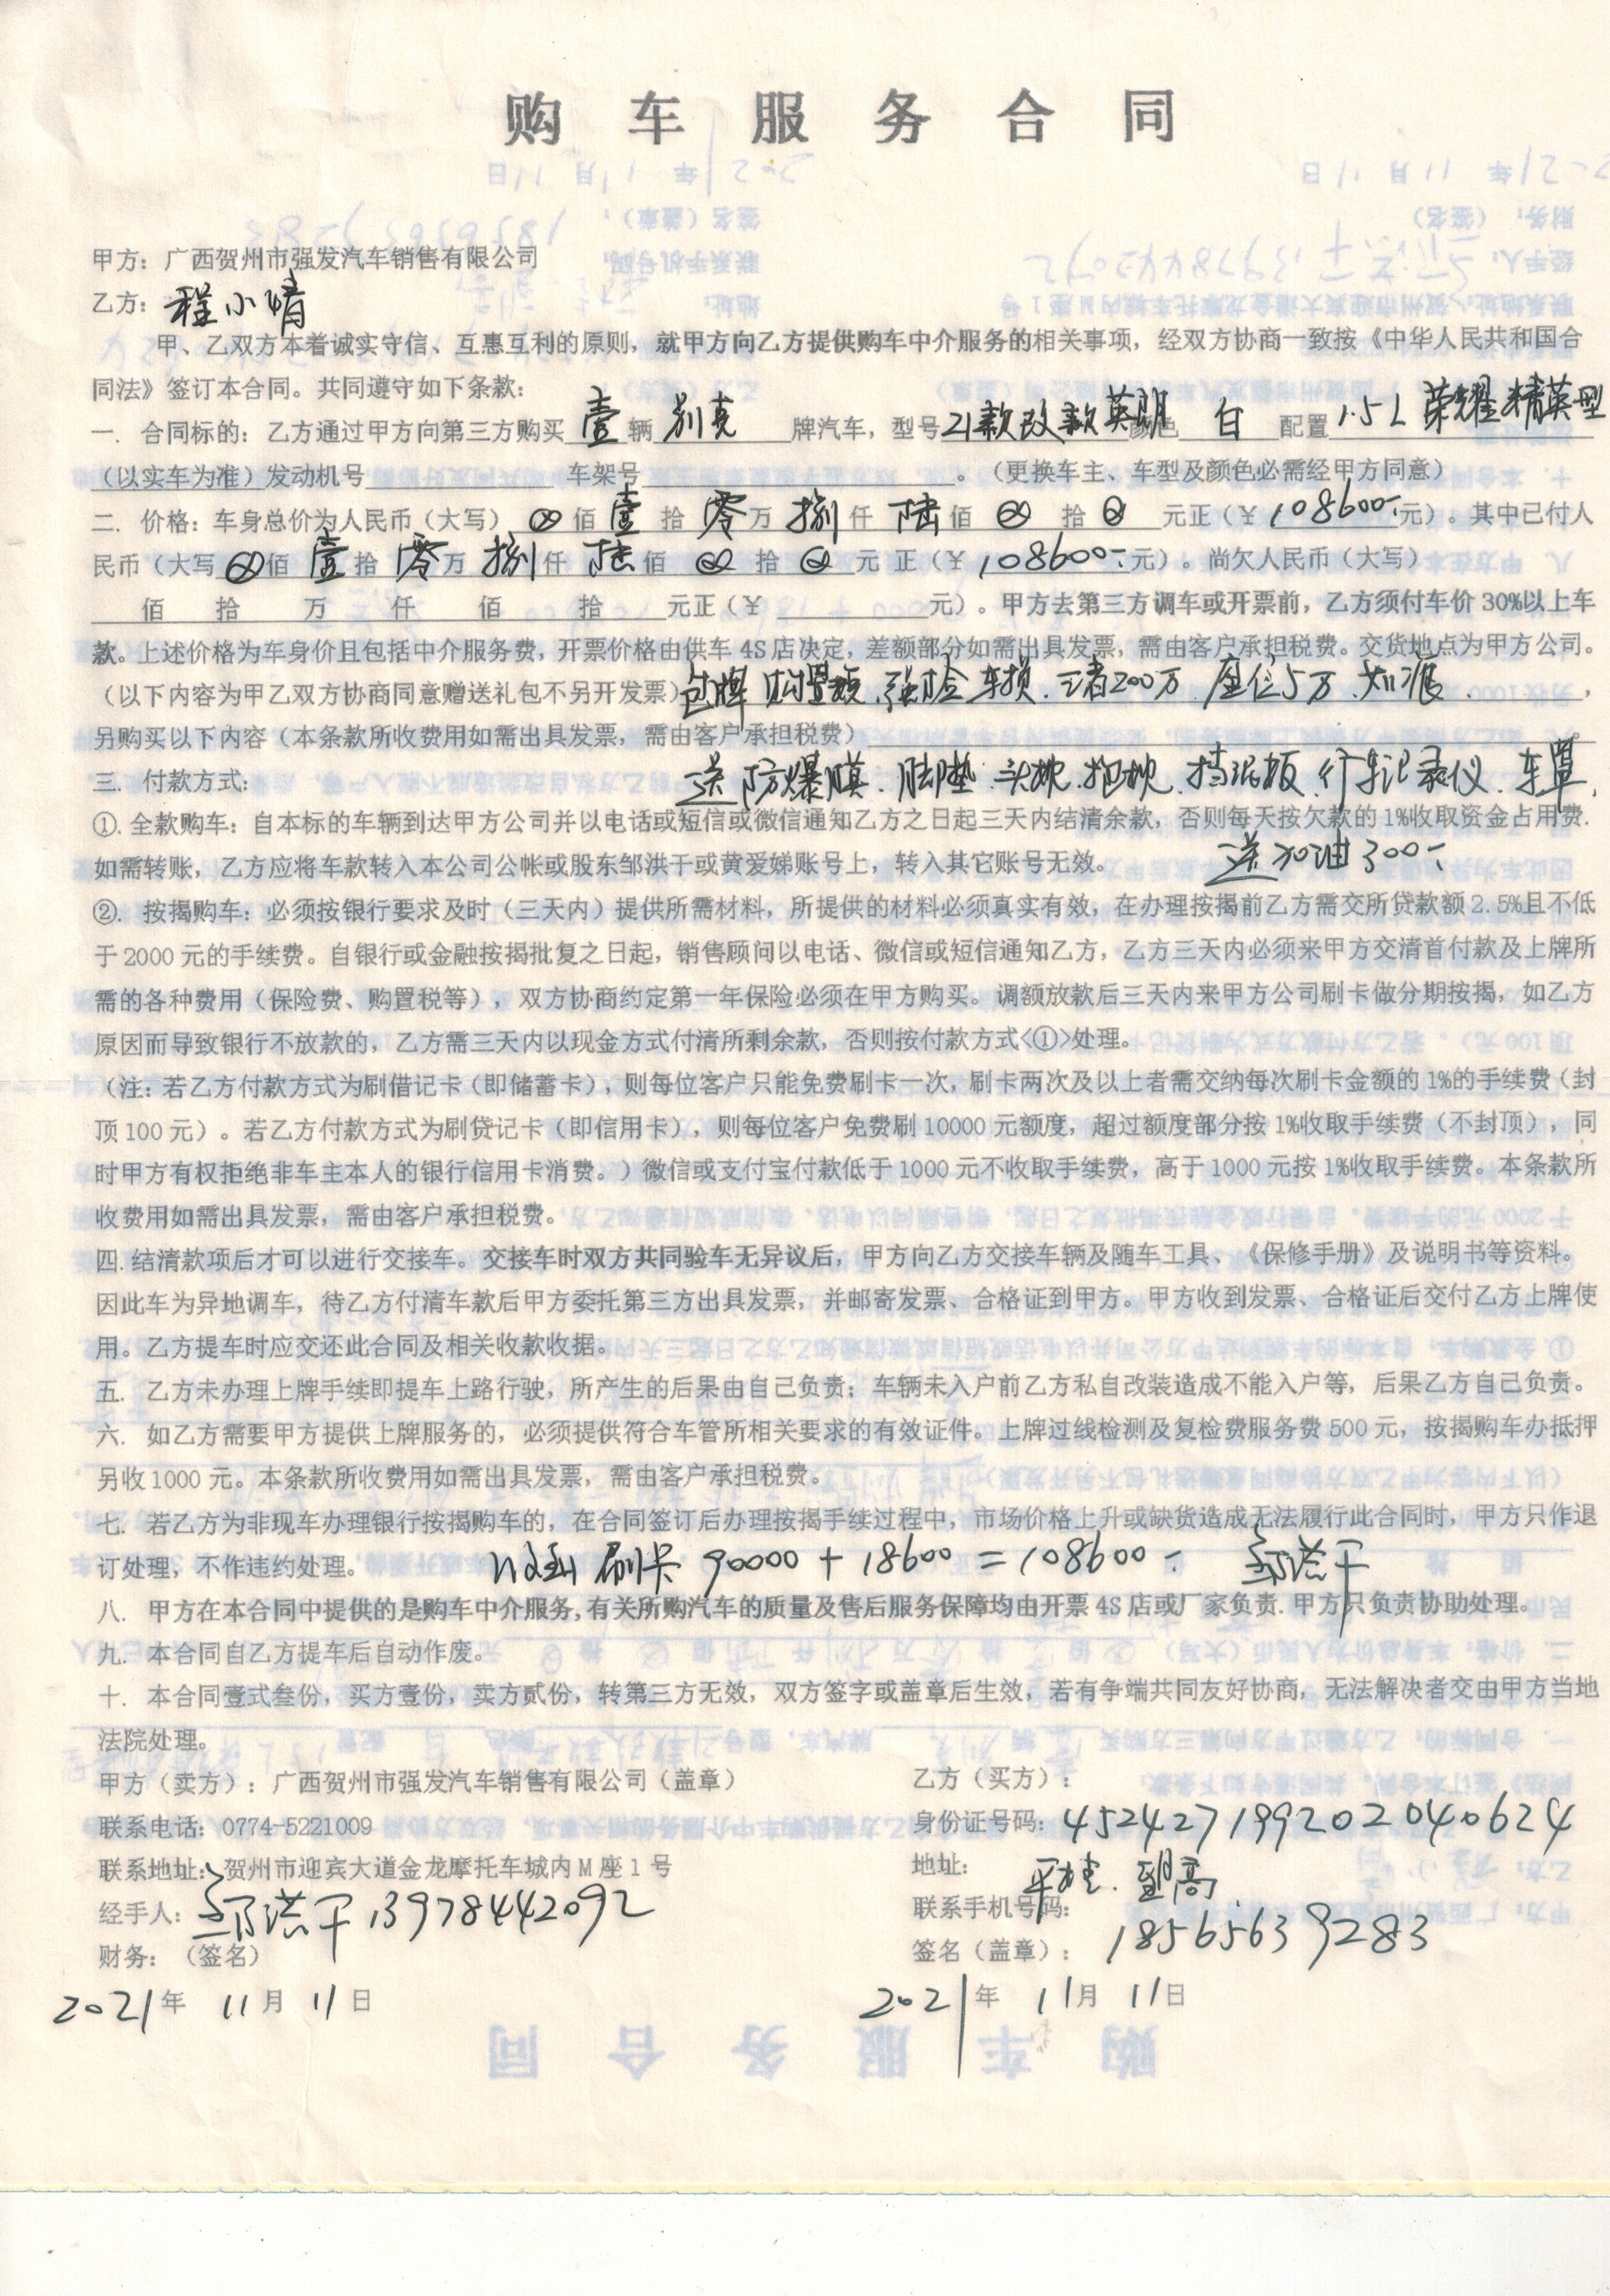 购车服务合同
甲方：广西贺州市强发汽车销售有限公司
乙方：程小情
甲、乙双方本着诚实守信、互惠互利的原则，就甲方向乙方提供购车中介服务的相关事项，经双方协商一致按《中华人民共和国合
同法》签订本合同。共同遵守如下条款：
一. 合同标的：乙方通过甲方向第三方购买 壹 辆 别克 牌汽车，型号 21款改款英朗 颜色 白 配置 1.5L 荣耀精英型
（以实车为准）发动机号 车架号 。（更换车主、车型及颜色必需经甲方同意）
二. 价格：车身总价为人民币（大写）⊗佰 壹 拾 零 万 捌 仟 陆 佰 ⊗ 拾 ⊗ 元正（￥108600-元）。其中已付人
民币（大写 ⊗佰 壹 拾 零 万 捌 仟 陆 佰 ⊗ 拾 ⊗ 元 正（￥108600-元）。尚欠人民币（大写）
佰 拾 万 仟 佰 拾 元正（￥ 元）。甲方去第三方调车或开票前，乙方须付车价30%以上车
款。上述价格为车身价且包括中介服务费，开票价格由供车4S店决定，差额部分如需出具发票，需由客户承担税费。交货地点为甲方公司。
（以下内容为甲乙双方协商同意赠送礼包不另开发票）包牌 购置税.强险 车损.三者200万.座位5万.划痕.，
另购买以下内容（本条款所收费用如需出具发票，需由客户承担税费）
三. 付款方式： 送 防爆膜.脚垫.头枕.抱枕.挡泥板.行车记录仪.车罩.
①. 全款购车：自本标的车辆到达甲方公司并以电话或短信或微信通知乙方之日起三天内结清余款，否则每天按欠款的1%收取资金占用费.
如需转账，乙方应将车款转入本公司公帐或股东邹洪干或黄爱娣账号上，转入其它账号无效。 送加油300-
②. 按揭购车：必须按银行要求及时（三天内）提供所需材料，所提供的材料必须真实有效，在办理按揭前乙方需交所贷款额2.5%且不低
于2000元的手续费。自银行或金融按揭批复之日起，销售顾问以电话、微信或短信通知乙方，乙方三天内必须来甲方交清首付款及上牌所
需的各种费用（保险费、购置税等），双方协商约定第一年保险必须在甲方购买。调额放款后三天内来甲方公司刷卡做分期按揭，如乙方
原因而导致银行不放款的，乙方需三天内以现金方式付清所剩余款，否则按付款方式<①>处理。
（注：若乙方付款方式为刷借记卡（即储蓄卡），则每位客户只能免费刷卡一次，刷卡两次及以上者需交纳每次刷卡金额的1%的手续费（封
顶100元）。若乙方付款方式为刷贷记卡（即信用卡），则每位客户免费刷10000元额度，超过额度部分按1%收取手续费（不封顶），同
时甲方有权拒绝非车主本人的银行信用卡消费。）微信或支付宝付款低于1000元不收取手续费，高于1000元按1%收取手续费。本条款所
收费用如需出具发票，需由客户承担税费。
四. 结清款项后才可以进行交接车。交接车时双方共同验车无异议后，甲方向乙方交接车辆及随车工具、《保修手册》及说明书等资料。
因此车为异地调车，待乙方付清车款后甲方委托第三方出具发票，并邮寄发票、合格证到甲方。甲方收到发票、合格证后交付乙方上牌使
用。乙方提车时应交还此合同及相关收款收据。
五. 乙方未办理上牌手续即提车上路行驶，所产生的后果由自己负责；车辆未入户前乙方私自改装造成不能入户等，后果乙方自己负责。
六. 如乙方需要甲方提供上牌服务的，必须提供符合车管所相关要求的有效证件。上牌过线检测及复检费服务费500元，按揭购车办抵押
另收1000元。本条款所收费用如需出具发票，需由客户承担税费。
七. 若乙方为非现车办理银行按揭购车的，在合同签订后办理按揭手续过程中，市场价格上升或缺货造成无法履行此合同时，甲方只作退
订处理，不作违约处理。 刷卡 90000+18600=108600- 邹洪干
八. 甲方在本合同中提供的是购车中介服务,有关所购汽车的质量及售后服务保障均由开票4S店或厂家负责.甲方只负责协助处理。
九. 本合同自乙方提车后自动作废。
十. 本合同壹式叁份，买方壹份，卖方贰份，转第三方无效，双方签字或盖章后生效，若有争端共同友好协商，无法解决者交由甲方当地
法院处理。
甲方（卖方）：广西贺州市强发汽车销售有限公司（盖章） 乙方（买方）：
联系电话：0774-5221009 身份证号码：452427199202040624
联系地址：贺州市迎宾大道金龙摩托车城内M座1号 地址： 平桂.望高.
经手人：邹洪干 13978442092 联系手机号码：
财务：（签名） 签名（盖章）：18565639283
2021年 11月 11日 2021年 11月 11日